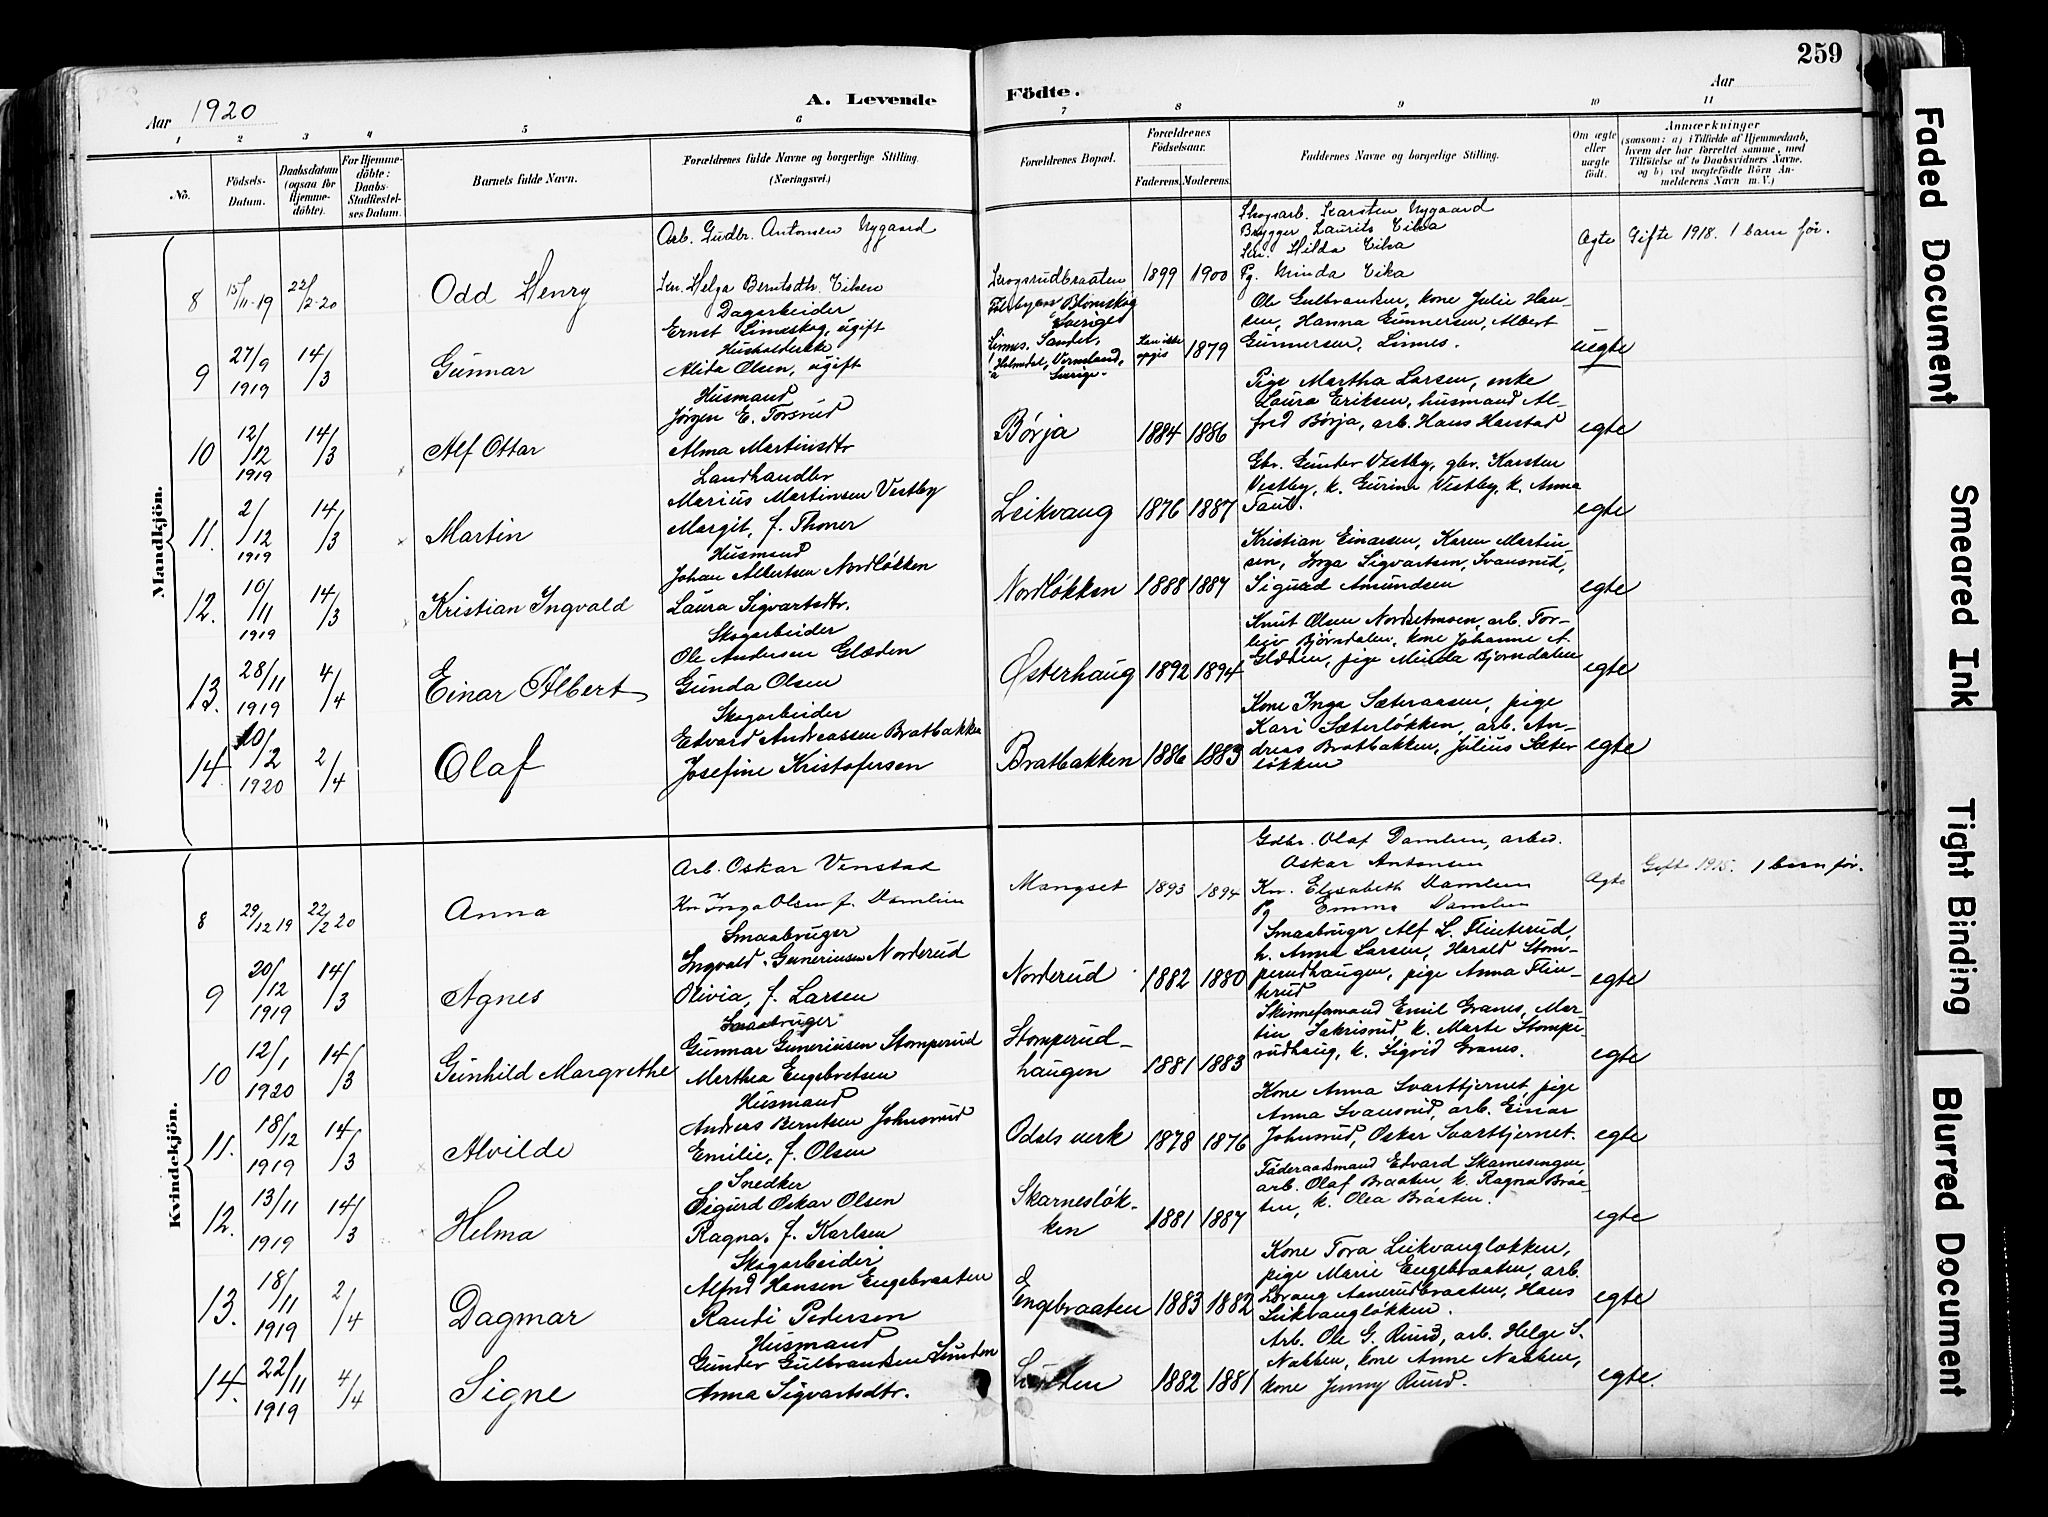 259
Aar 1920
A. Levende Födte.
Aar
1 2 3 4 5 6 7 8 9 10 11
No.
Födsels-Datum.
Daabsdatum (ogsaa for Hjemmedöbte).
For Hjemmedöbte: Daabs-Stadfæstelses Datum.
Barnets fulde Navn.
Forældrenes fulde Navne og borgerlige Stilling. (Næringsvei.)
Forældrenes Bopæl.
Forældrenes Födselsaar.
Faderens. Moderens.
Faddernes Navne og borgerlige Stilling.
Om ægte eller uægte födt.
Anmærkninger
(saasom: a) i Tilfælde af Hjemmedaab, hvem der har forrettet samme, med Tilföielse af to Daabsvidners Navne, og b) ved uægtefödte Börn Anmelderens Navn m.V.)
Mandkjön.
8 15/11-19 22/2-20 Odd Henry
Arb. Gudbr. Antonsen Nygaard
Helga Berntsdtr.
Krogsrudbraaten 1899 1900
Skogsarb. Karsten Nygaard
Brygger Laurits
Hilda
Pg. Minda
Ægte Gifte 1918. 1 barn før.
9 27/9 1919 14/3 Gunnar
Dagarbeider
Ernst Linneskog, ugift
Husholderske
Alida Olsen, ugift
Blomskog
Sverige
Linnes. Sandet,
Vermland,
Sverige.
Kan ikke opgis 1879
Ole Gulbrandsen, kone Julie Han-
sen, Hanna Gunnersen, Albert
Gunnersen, Linnes.
uegte
10 12/12 1919 14/3 Alf Ottar
Husmand
Jørgen E. Torsrud
Alma Martinsdtr
Børja 1884 1886
Pige Martha Larsen, enke
Laura Eriksen, husmand Al-
fred Børja, arb. Hans Harstad
egte
11. 2/12 1919 14/3 Martin
Landhandler
Marius Martinsen Vestby
Margit, f. Thoner
Leikvang 1876 1887
Gbr. Gunder Vestby, gbr. Karsten
Vestby, k. Gurine Vestby, k. Anna
egte
12. 10/11 1919 14/3 Kristian Ingvald
Husmand
Johan Albertsen Nordløkken
Laura Sigvartsdtr.
Nordløkken 1888 1887
Kristian Einarsen, Karen Martin
sen, Inga Sigvartsen, Svansrud,
Sigurd Amundsen
egte
13. 28/11 1919 4/4 Einar Albert
Skogarbeider
Ole Andersen Glæden
Gunda Olsen
Østerhaug 1892 1894
Knut Olsen Nordsetmoen, arb. Tor-
leiv Bjørndalen, kone Johanne A.
Glæden, pige Minda Bjørndalen
egte
14. 10/2 1920 2/4 Olaf
Skogarbeider
Edvard Andreassen Bratbakken
Josefine Kristofersen
Bratbakken 1886 1883
Kone Inga Sæteraasen, pige
Kari Sæterløkken, arb. An-
dreas Bratbakken, Julius Sæter
løkken
egte
Kvindekjön.
8 29/12 19 22/2 20 Anna
Arb. Oskar Vinstad
Kn Inga Olsen f. Damlien
Mangset 1893 1894
Gdbr. Olaf Damlien, arbeid.
Oskar Antonsen
Kn. Elisabeth Damlien
Pg Emma Damlien
Ægte Gifte 1915. 1 barn før.
9 20/12 1919 14/3 Agnes
Smaabruger
Ingvald Guneriusen Norderud
Olivia, f. Larsen
Norderud 1882 1880
Smaabruger Alf L. Flinterud,
h. Anna Larsen, Harald Stom-
perudhaugen, pige Anna Flin-
terud
egte
10 12/1 1920 14/3 Gunhild Margrethe
Smaabruger
Gunnar Guneriusen Stomperud
Marthea Engebretsen
Stomperud-
haugen 1881 1883
Skinneformand Emil Granes, Mar-
tin Sakrisrud, k. Marte Stompe-
rudhaug, k. Sigrid Granes.
egte
11. 18/12 1919 14/3 Alvilde
Husmand
Anders Berntsen Johnsrud
Emilie, f. Olsen
Odals verk 1878 1876
Kone Anna Svarttjernet, pige
Anna Svansrud, arb. Einar
Johnsrud, Oskar Svarttjernet.
egte
12. 13/11 1919 14/3 Helma
Snedker
Sigurd Oskar Olsen
Ragna, f. Karlsen
Skarnesløk-
ken 1881 1887
Føderaadsmand Edvard Skarnesengen,
arb. Olaf Braaten, k. Ragna Braa-
ten, k. Olea Braaten.
egte
13. 18/11 1919 2/4 Dagmar
Skogarbeider
Alfred Hansen Engebraaten
Randi Pedersen
Engebraaten 1883 1882
Kone Tora Leikvangløkken,
pige Marie Engebraaten, arb.
Lorang Aanerudbraaten, Hans
Leikvangløkken.
egte
14. 22/11 1919 4/4 Signe
Husmand
Gunder Gulbrandsen Linden
Anna Sigvartsdtr.
1882 1881
Arb. Ole G. Ruud, arb. Helge S.
Nabben, kone Anne Nabben,
kone Jenny Ruud.
egte.
Faded Document
Smeared Ink
Tight Binding
Blurred Document